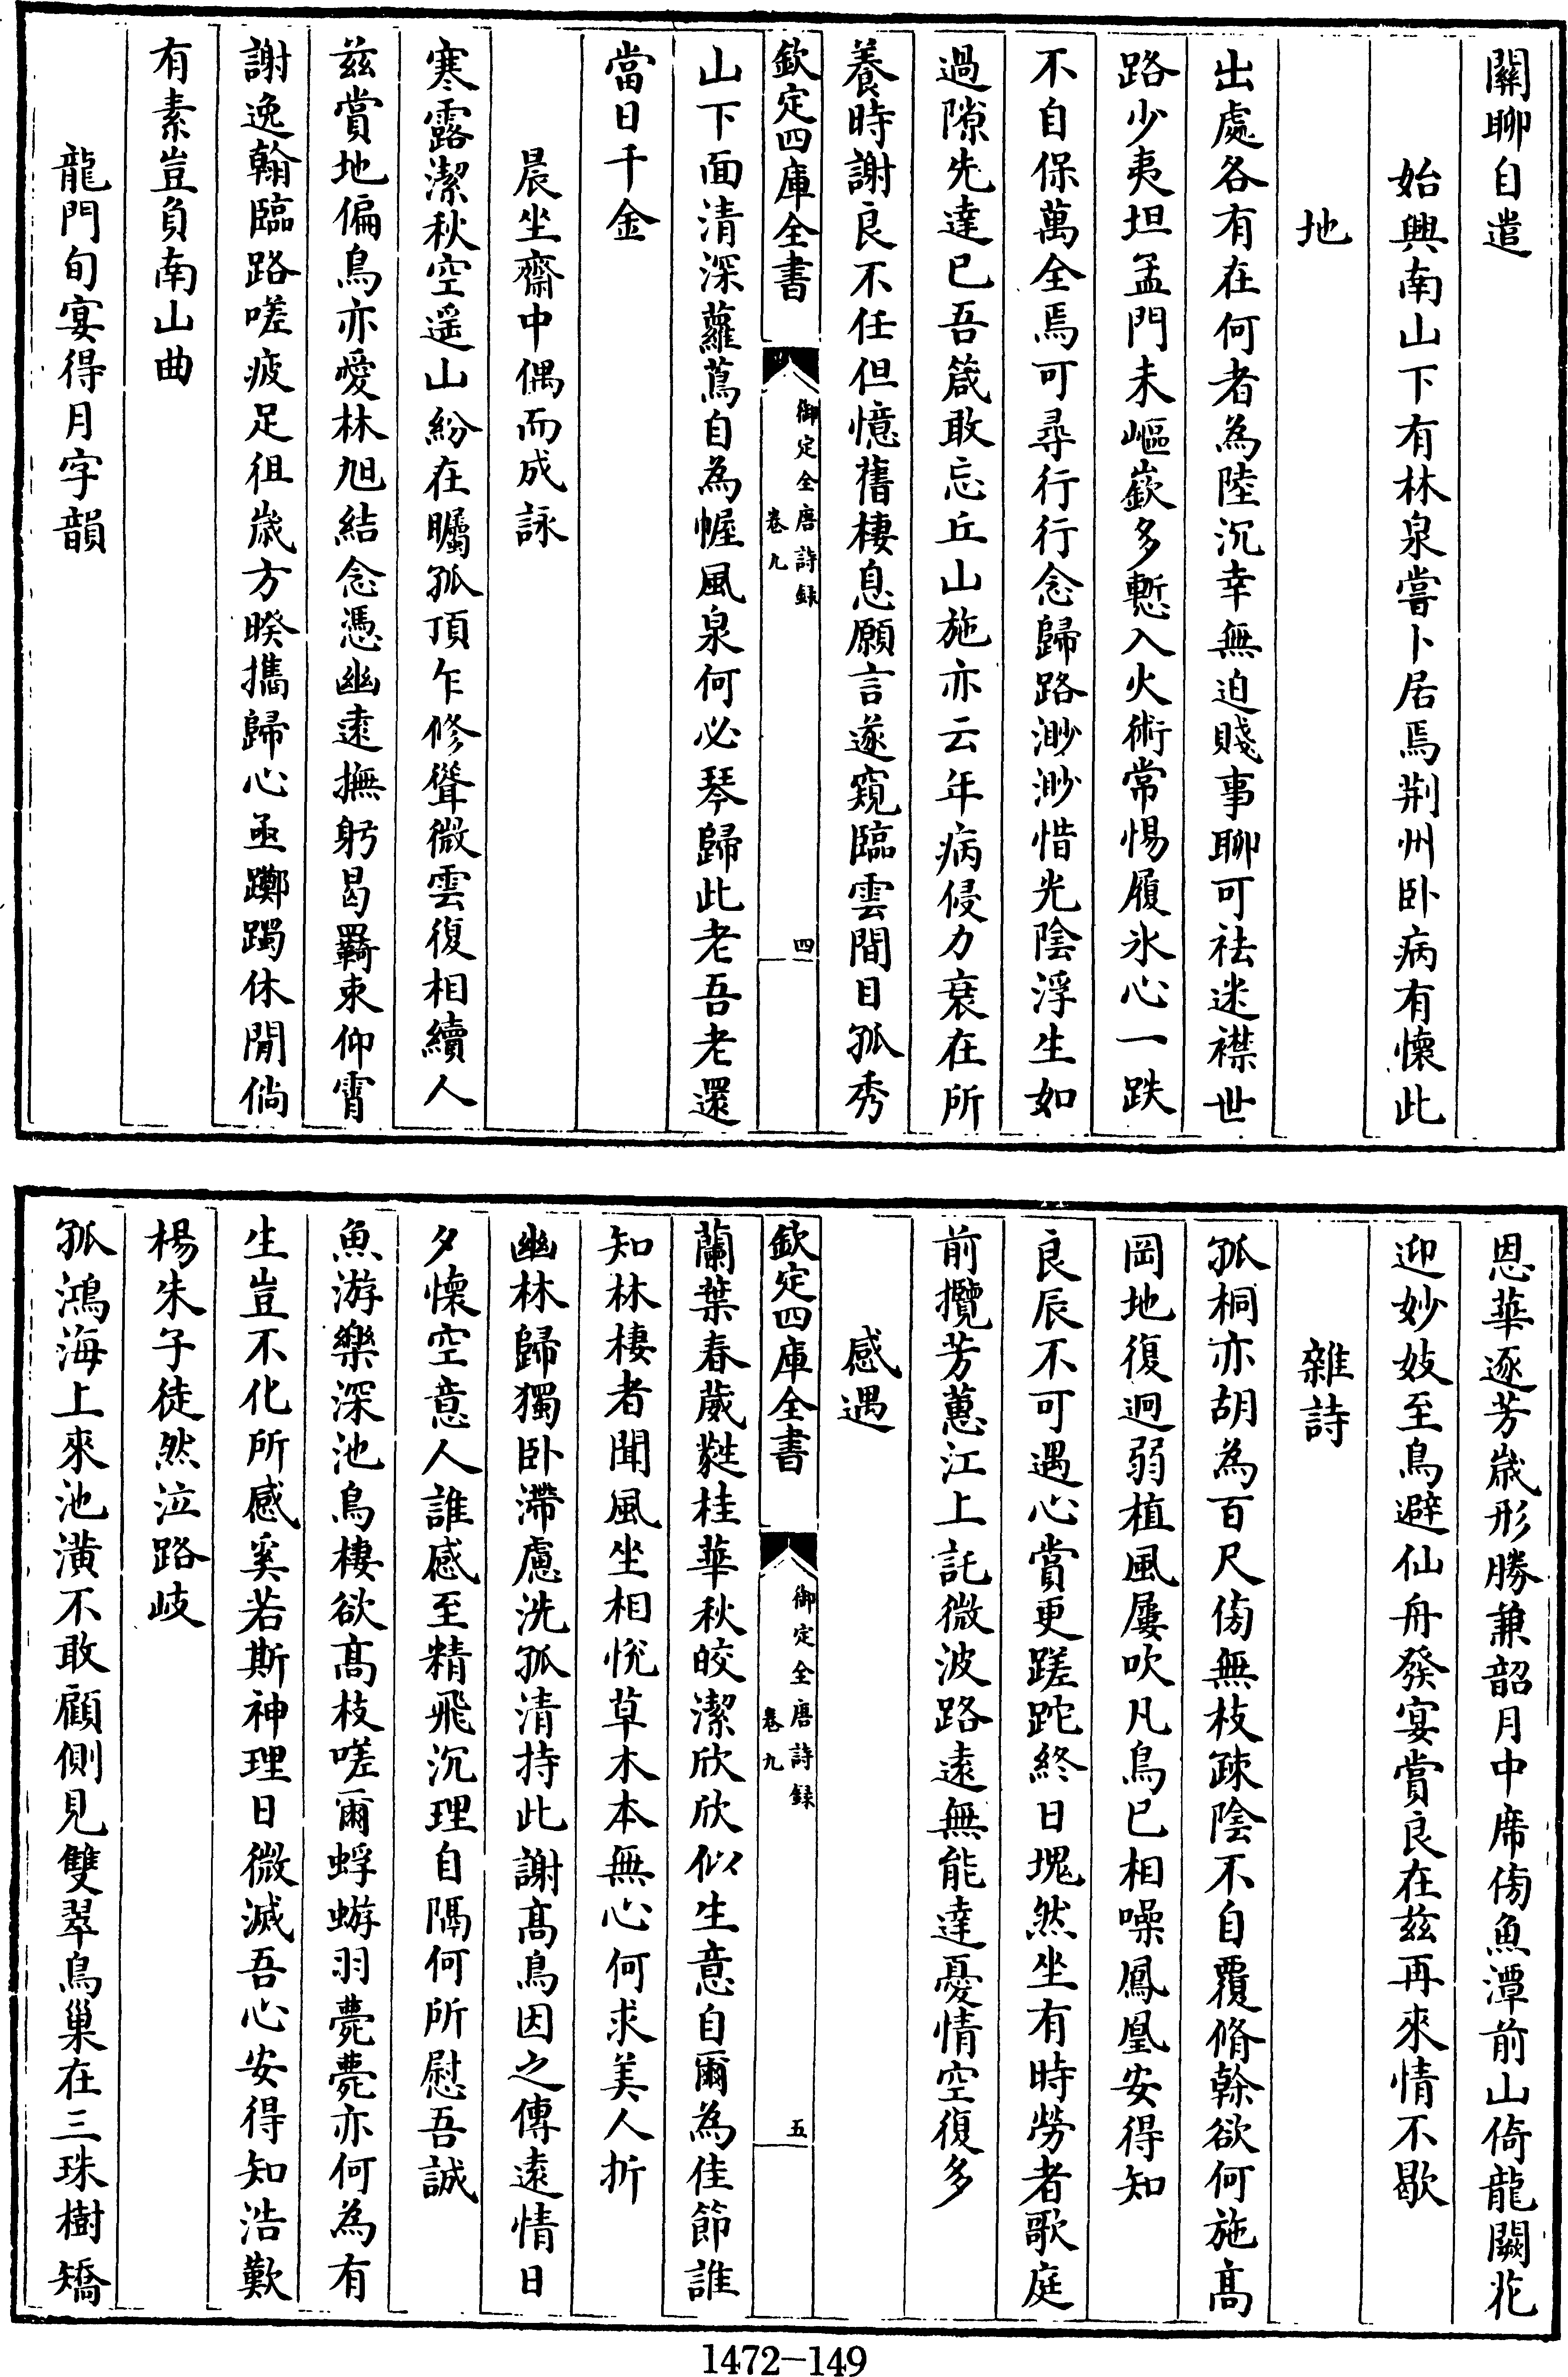 關聊自遣
始興南山下有林泉嘗卜居焉荆州卧病有懷此
地
出處各有在何者為陸沉幸無迫賤事聊可祛迷襟世
路少夷坦孟門未嶇嶔多慙入火術常惕履氷心一跌
不自保萬全焉可尋行行念歸路渺渺惜光陰浮生如
過隙先達已吾箴敢忘丘山施亦云年病侵力衰在所
養時謝良不任但憶舊棲息願言遂窺臨雲間目孤秀
欽定四庫全書
御定全唐詩録
卷九
四
山下面清深蘿蔦自為幄風泉何必琴歸此老吾老還
當日千金
晨坐齋中偶而成詠
寒露潔秋空遥山紛在矚孤頂乍修聳微雲復相續人
兹賞地偏鳥亦愛林旭結念憑幽逺撫躬曷羇束仰霄
謝逸翰臨路嗟疲足徂嵗方暌攜歸心亟躑躅休閒倘
有素豈負南山曲
龍門旬宴得月字韻
恩華逐芳嵗形勝兼韶月中席傍魚潭前山倚龍闕花
迎妙妓至鳥避仙舟發宴賞良在兹再來情不歇
雜詩
孤桐亦胡為百尺傍無枝疎陰不自覆脩榦欲何施髙
岡地復迥弱植風屢吹凡鳥已相噪鳳凰安得知
良辰不可遇心賞更蹉跎終日塊然坐有時勞者歌庭
前攬芳蕙江上託微波路逺無能達憂情空復多
感遇
欽定四庫全書
御定全唐詩録
卷九
五
蘭葉春葳蕤桂華秋皎潔欣欣似生意自爾為佳節誰
知林棲者聞風坐相悅草木本無心何求美人折
幽林歸獨卧滯慮洗孤清持此謝髙鳥因之傳逺情日
夕懷空意人誰感至精飛沉理自隔何所慰吾誠
魚游樂深池鳥棲欲髙枝嗟爾蜉蝣羽薨薨亦何為有
生豈不化所感奚若斯神理日微滅吾心安得知浩歎
楊朱子徒然泣路岐
孤鴻海上來池潢不敢顧側見雙翠鳥巢在三珠樹矯
1472-149